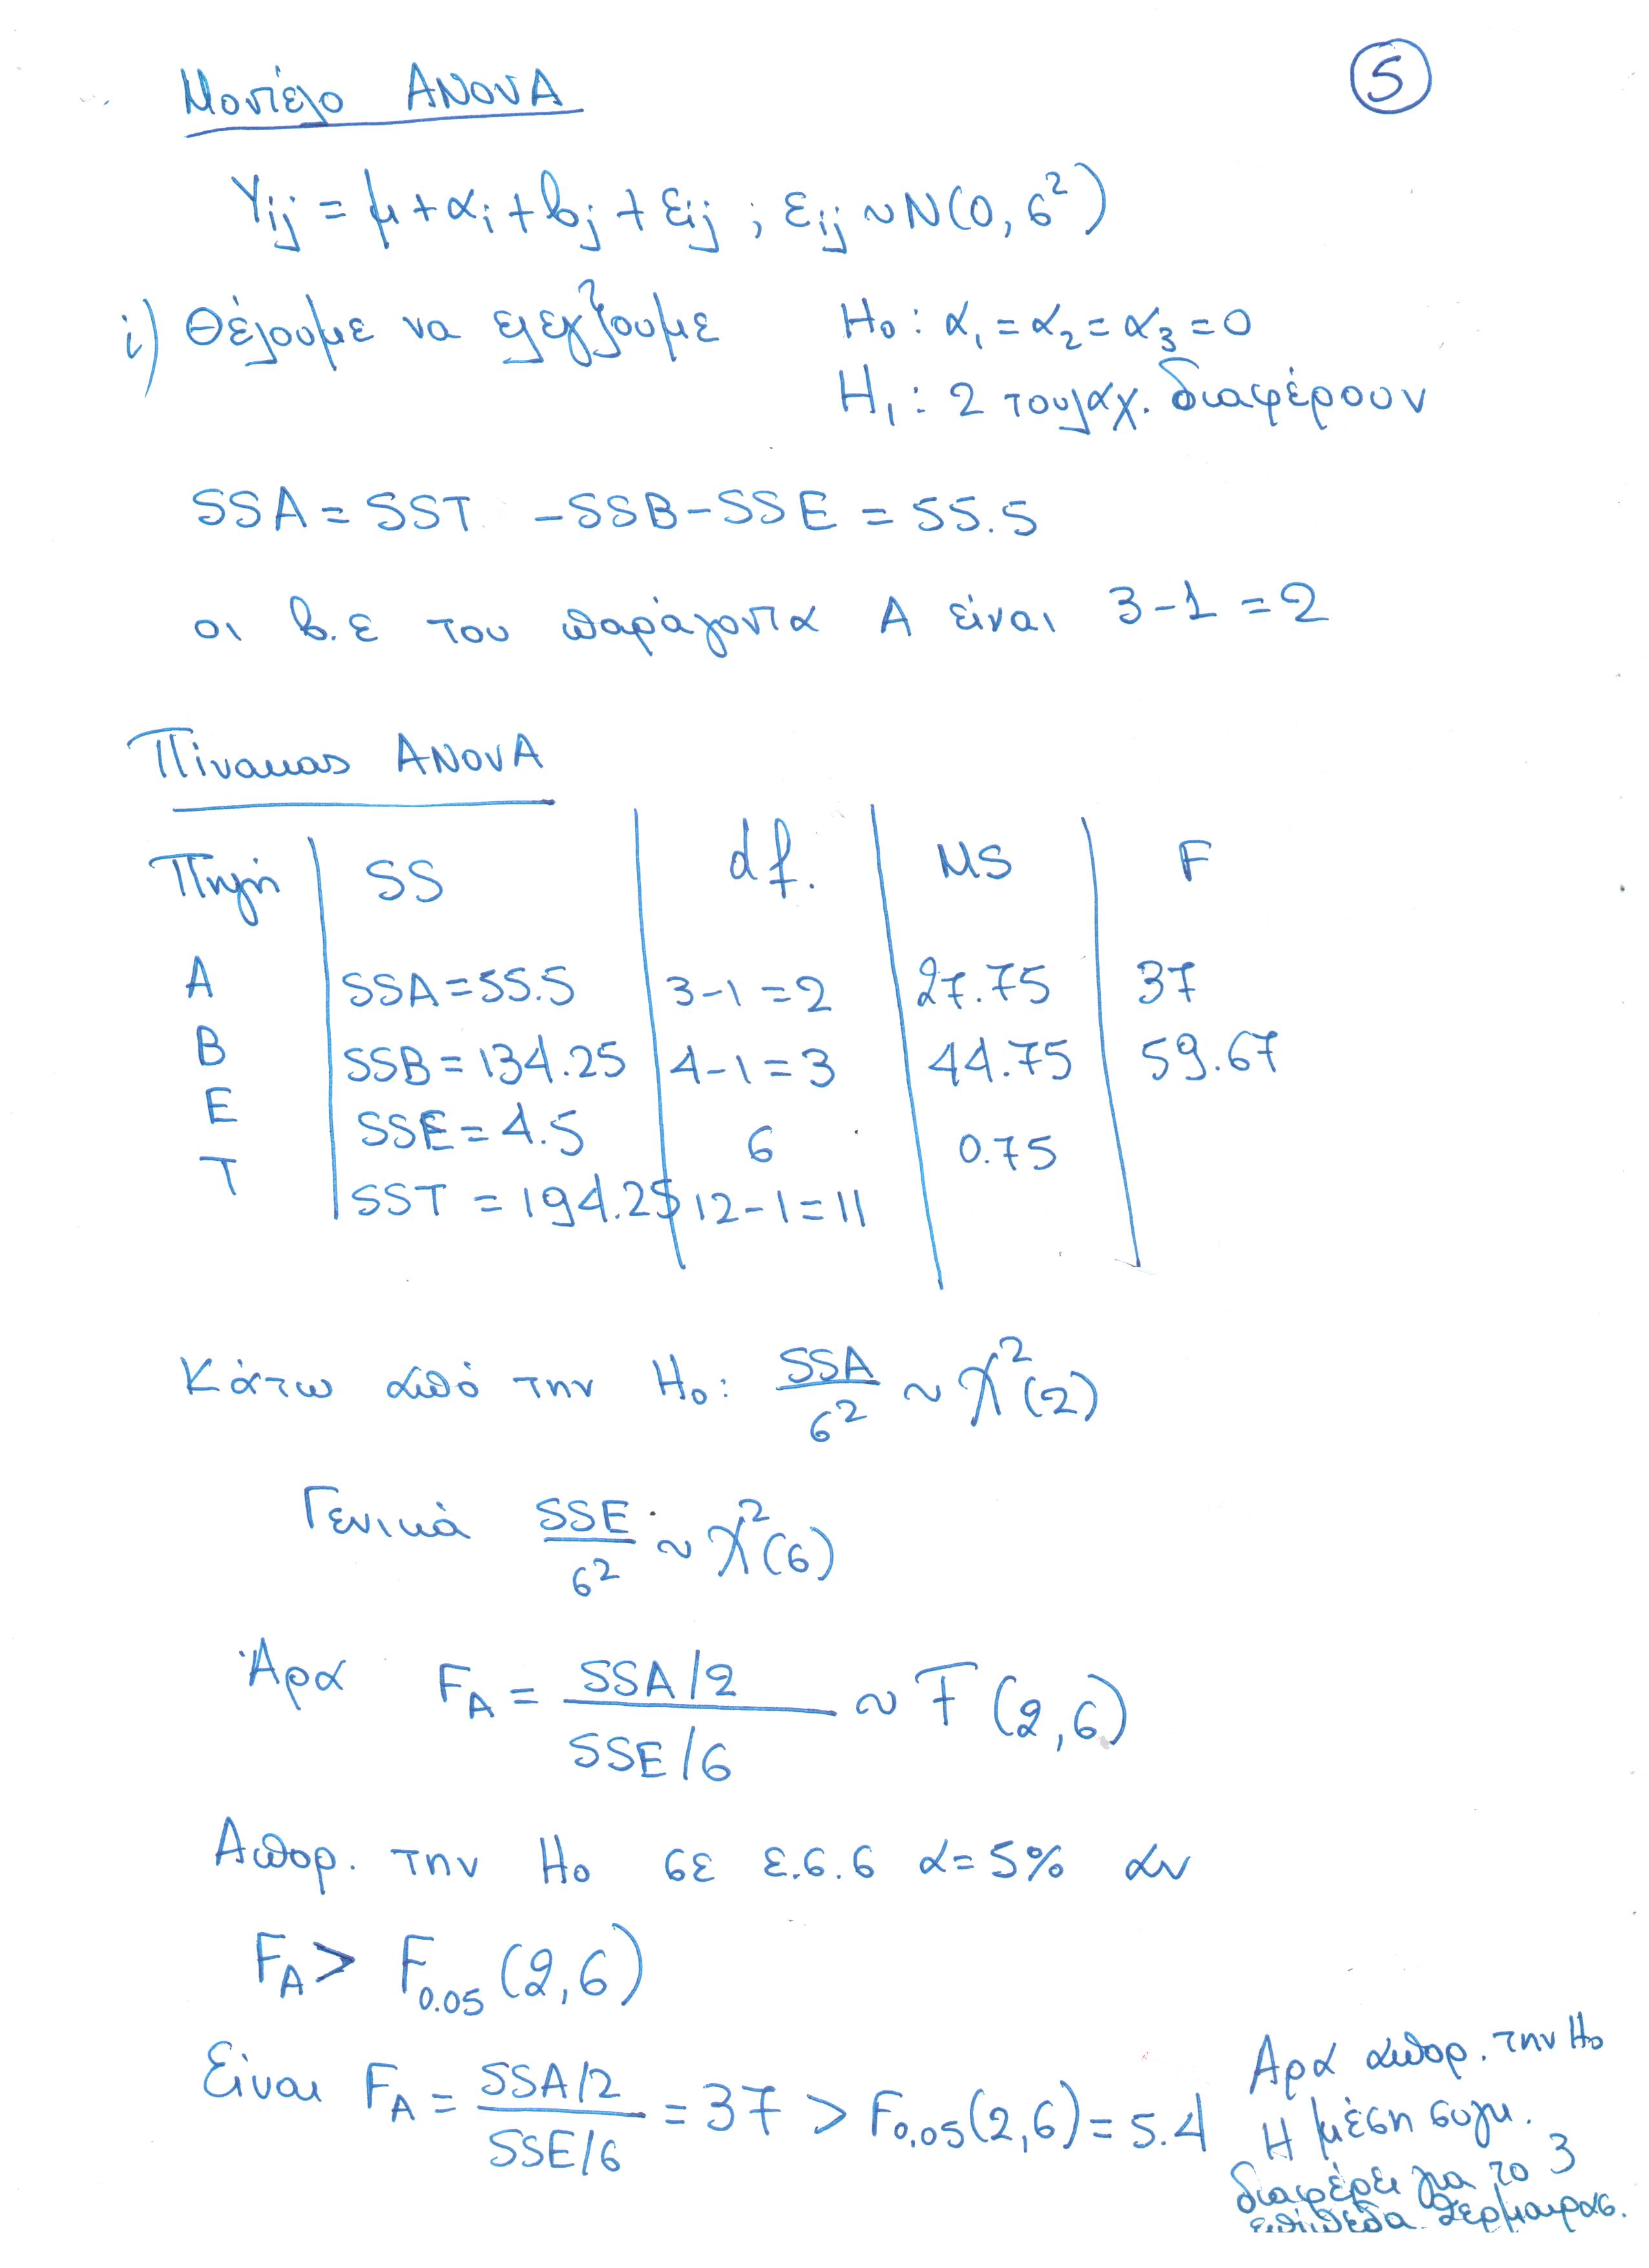 Μοντέλο ANOVA
5
Yij = μ + αi + bj + εij ; εij ~ N(0, σ²)
i) Θέλουμε να ελέγξουμε H₀: α₁ = α₂ = α₃ = 0
H₁: 2 τουλαχ. διαφέρουν
SSA = SST - SSB - SSE = 55.5
οι β.ε του παράγοντα A είναι 3-1 = 2
Πίνακας ANOVA
Πηγή SS df. MS F
A SSA = 55.5 3-1 = 2 27.75 37
B SSB = 134.25 4-1 = 3 44.75 59.67
E SSE = 4.5 6 0.75
T SST = 194.25 12-1 = 11
Κάτω από την H₀: SSA/σ² ~ χ²(2)
Γενικά SSE/σ² ~ χ²(6)
Άρα F_A = (SSA/2)/(SSE/6) ~ F(2,6)
Απορ. την H₀ σε ε.σ.σ α = 5% αν
F_A > F₀.₀₅(2,6)
Είναι F_A = (SSA/2)/(SSE/6) = 37 > F₀.₀₅(2,6) = 5.4
Αρα απορ. την H₀
Η μέση συγκ.
διαφέρει για το 3
επίπεδα θερμοκρασ.